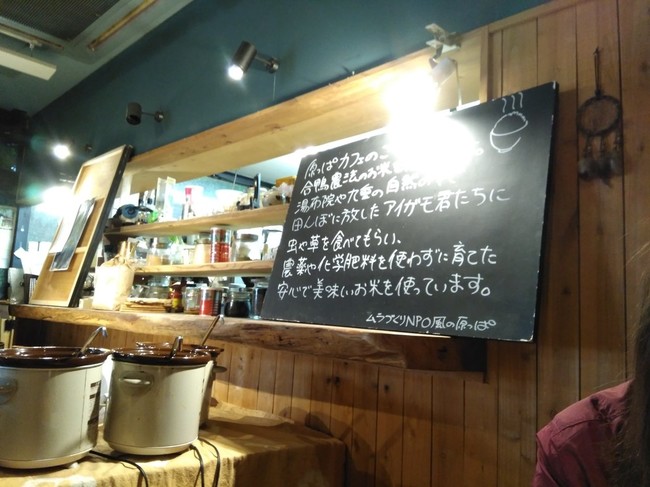 原っぱカフェの
合鴨農法のお米
湯布院や九重の自然の
田んぼに放したアイガモ君たちに
虫や草を食べてもらい、
農薬や化学肥料を使わずに育てた
安心で美味しいお米を使っています。
ムラづくりNPO風の原っぱ